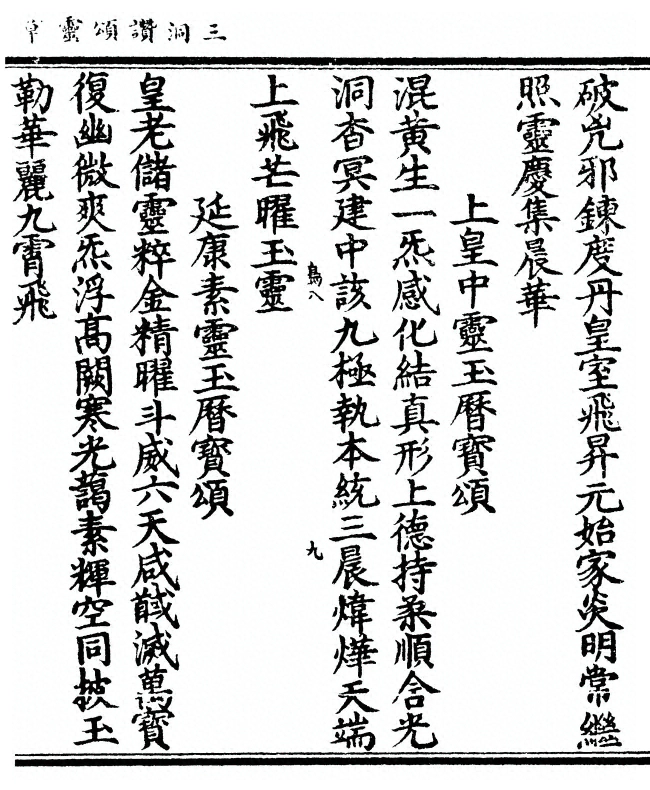 三洞讚頌靈章
破兇邪鍊度丹皇室飛昇元始家炎明常繼
照靈慶集晨華
上皇中靈玉曆寶頌
混黃生一炁感化結真形上德持柔順含光
洞杳冥建中該九極執本統三晨煒燁天端
鳥八
九
上飛芒曜玉靈
延康素靈玉曆寶頌
皇老儲靈粹金精曜斗威六天咸馘滅萬寶
復幽微爽炁浮高闕寒光藹素輝空同披玉
勒華麗九霄飛